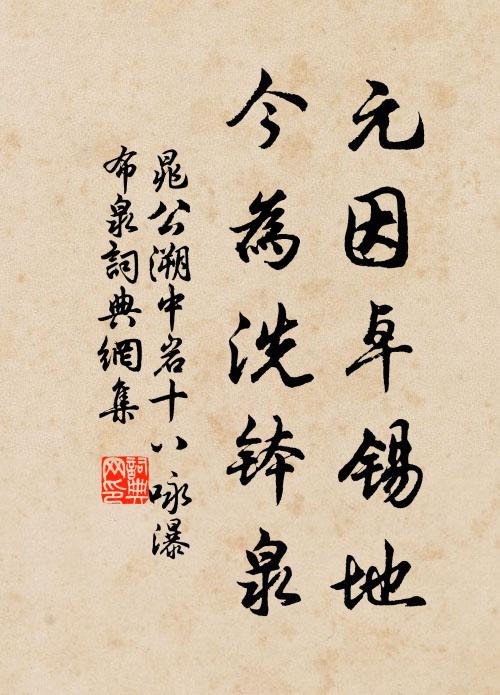 元因卓锡地
今為洗鉢泉
晁公溯中岩十八咏瀑
布泉詞典網集
詞典网印